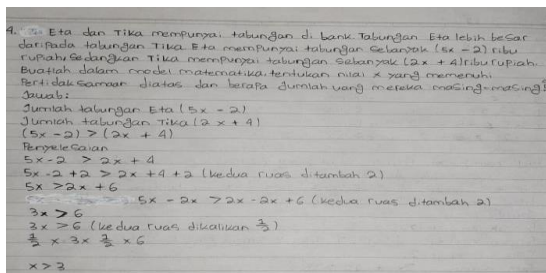 9. Eta dan Tika mempunyai tabungan di bank. Tabungan Eta lebih besar
daripada tabungan Tika Eta mempunyai tabungan sebanyak (5x - 2) ribu
rupiah. Sedangkan Tika mempunyai tabungan sebanyak (2x + 4) ribu rupiah.
Buatlah dalam model matematika, tentukan nilai x yang memenuhi
Pertidaksamaan diatas dan berapa Jumlah uang mereka masing-masing!
Jawab:
Jumlah tabungan Eta (5x - 2)
Jumlah tabungan Tika (2x + 4)
(5x - 2) > (2x + 4)
Penyelesaian
5x - 2 > 2x + 4
5x - 2 + 2 > 2x + 4 + 2 (kedua ruas ditambah 2)
5x > 2x + 6
5x - 2x > 2x - 2x + 6 (kedua ruas ditambah 2)
3x > 6
3x > 6 (kedua ruas dikalikan
x 3x x 6
x > 3